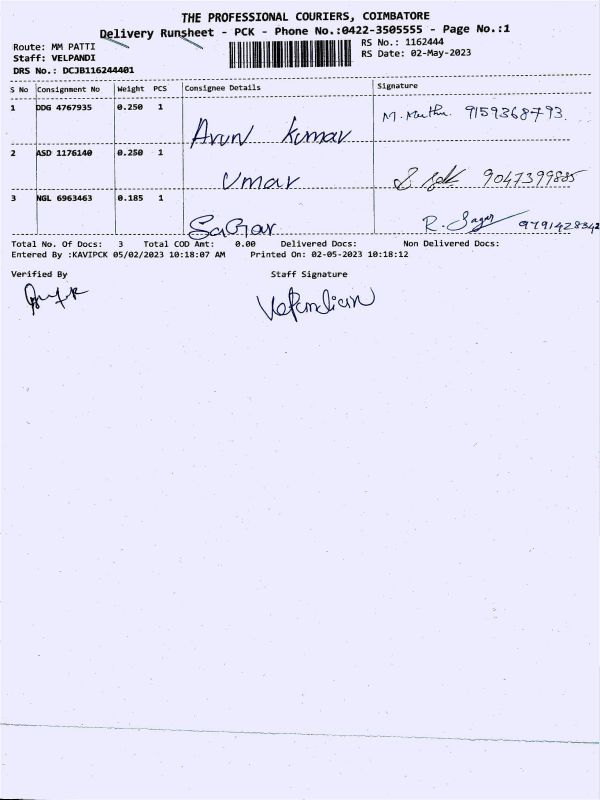 THE PROFESSIONAL COURIERS, COIMBATORE
Delivery Runsheet - PCK - Phone No.:0422-3505555 - Page No.:1
Route: MM PATTI
RS No.: 1162444
Staff: VELPANDI
RS Date: 02-May-2023
DRS No.: DCJB116244401
S No Consignment No Weight PCS Consignee Details Signature
1 DDG 4767935 0.250 1 Arun Kumar M. Muthu. 9159368793.
2 ASD 1176140 0.250 1 Umar 9047399885
3 NGL 6963463 0.185 1 SaGar R. Sagar 9791428342
Total No. Of Docs: 3 Total COD Amt: 0.00 Delivered Docs: Non Delivered Docs:
Entered By :KAVIPCK 05/02/2023 10:18:07 AM Printed On: 02-05-2023 10:18:12
Verified By Staff Signature